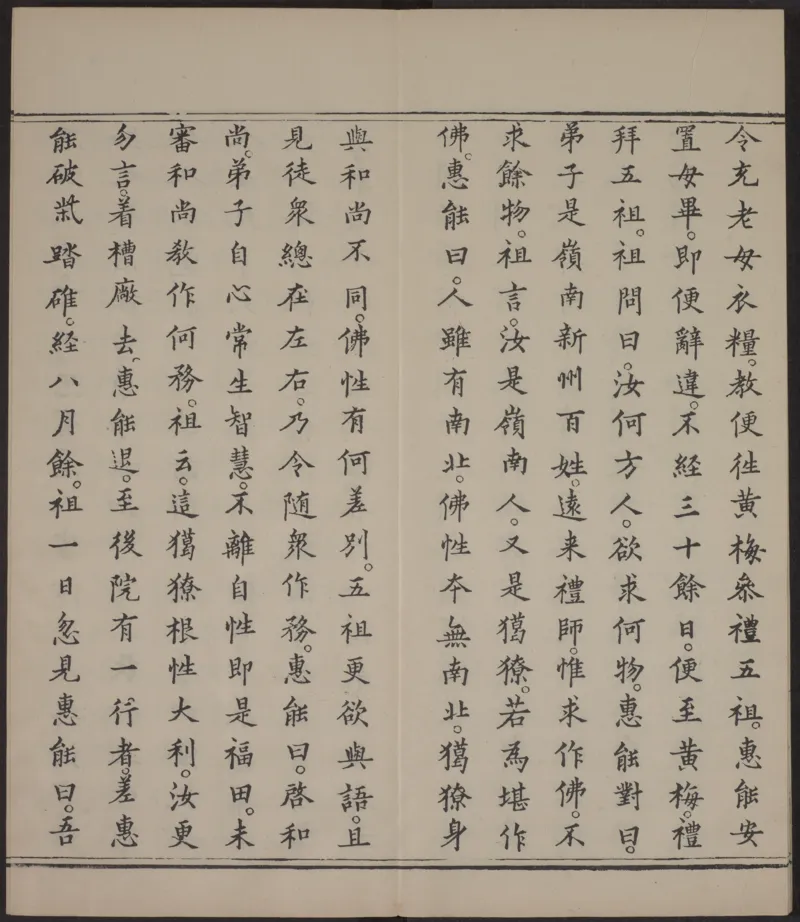 令充老母衣糧。教便徃黄梅叅禮五祖。惠能安
置母畢。即便辭違。不經三十餘日。便至黄梅。禮
拜五祖。祖問曰。汝何方人。欲求何物。惠能對曰。
弟子是嶺南新州百姓。遠来禮師。惟求作佛。不
求餘物。祖言。汝是嶺南人。又是獦獠。若為堪作
佛。惠能曰。人雖有南北。佛性夲無南北。獦獠身
與和尚不同。佛性有何差别。五祖更欲與語。且
見徒衆總在左右。乃令随衆作務。惠能曰。啓和
尚。弟子自心常生智慧。不離自性即是福田。未
審和尚教作何務。祖云。這獦獠根性大利。汝更
勿言。着槽廠去。惠能退。至後院有一行者。差惠
能破柴踏碓。経八月餘。祖一日忽見惠能曰。吾